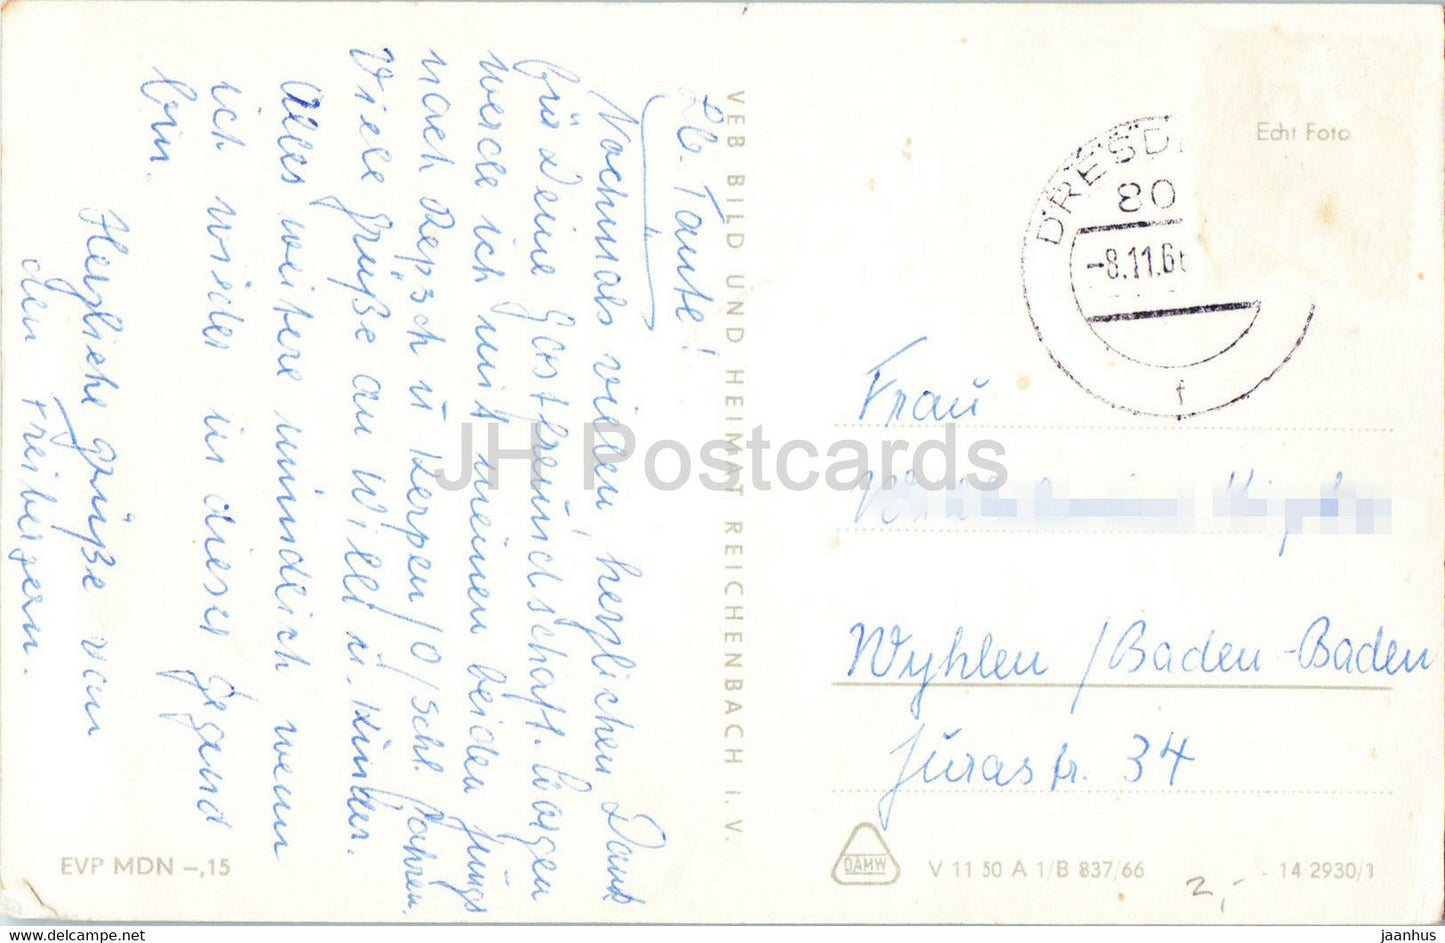 Lb. Tante!
Nochmals vielen, herzlichen Dank
für Deine Gastfreundschaft. Morgen
werde ich mit meinen beiden Jungs
nach u Kerpen/O/schl. fahren.
Viele Grüße an Willi u. Kinder.
Alles weitere mündlich wenn
ich wieder in dieser Gegend
bin.
Herzliche Grüße von
den Freibergern.
VEB BILD UND HEIMAT REICHENBACH I. V.
EVP MDN –,15
Echt Foto
DRESD
80
-8.11.66
f
Frau
Wyhlen / Baden-Baden
Jurastr. 34
DAMW
V 11 50 A 1/B 837/66
14 2930/1
2,-
JH Postcards
www.delcampe.net
jaanhus